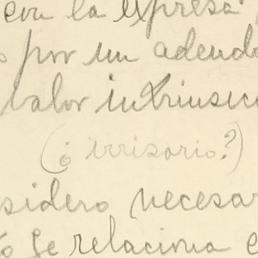 con la expresa
por un adendo
valor intrinsec
(¿o irrisorio?)
sidero necesar
se relaciona e